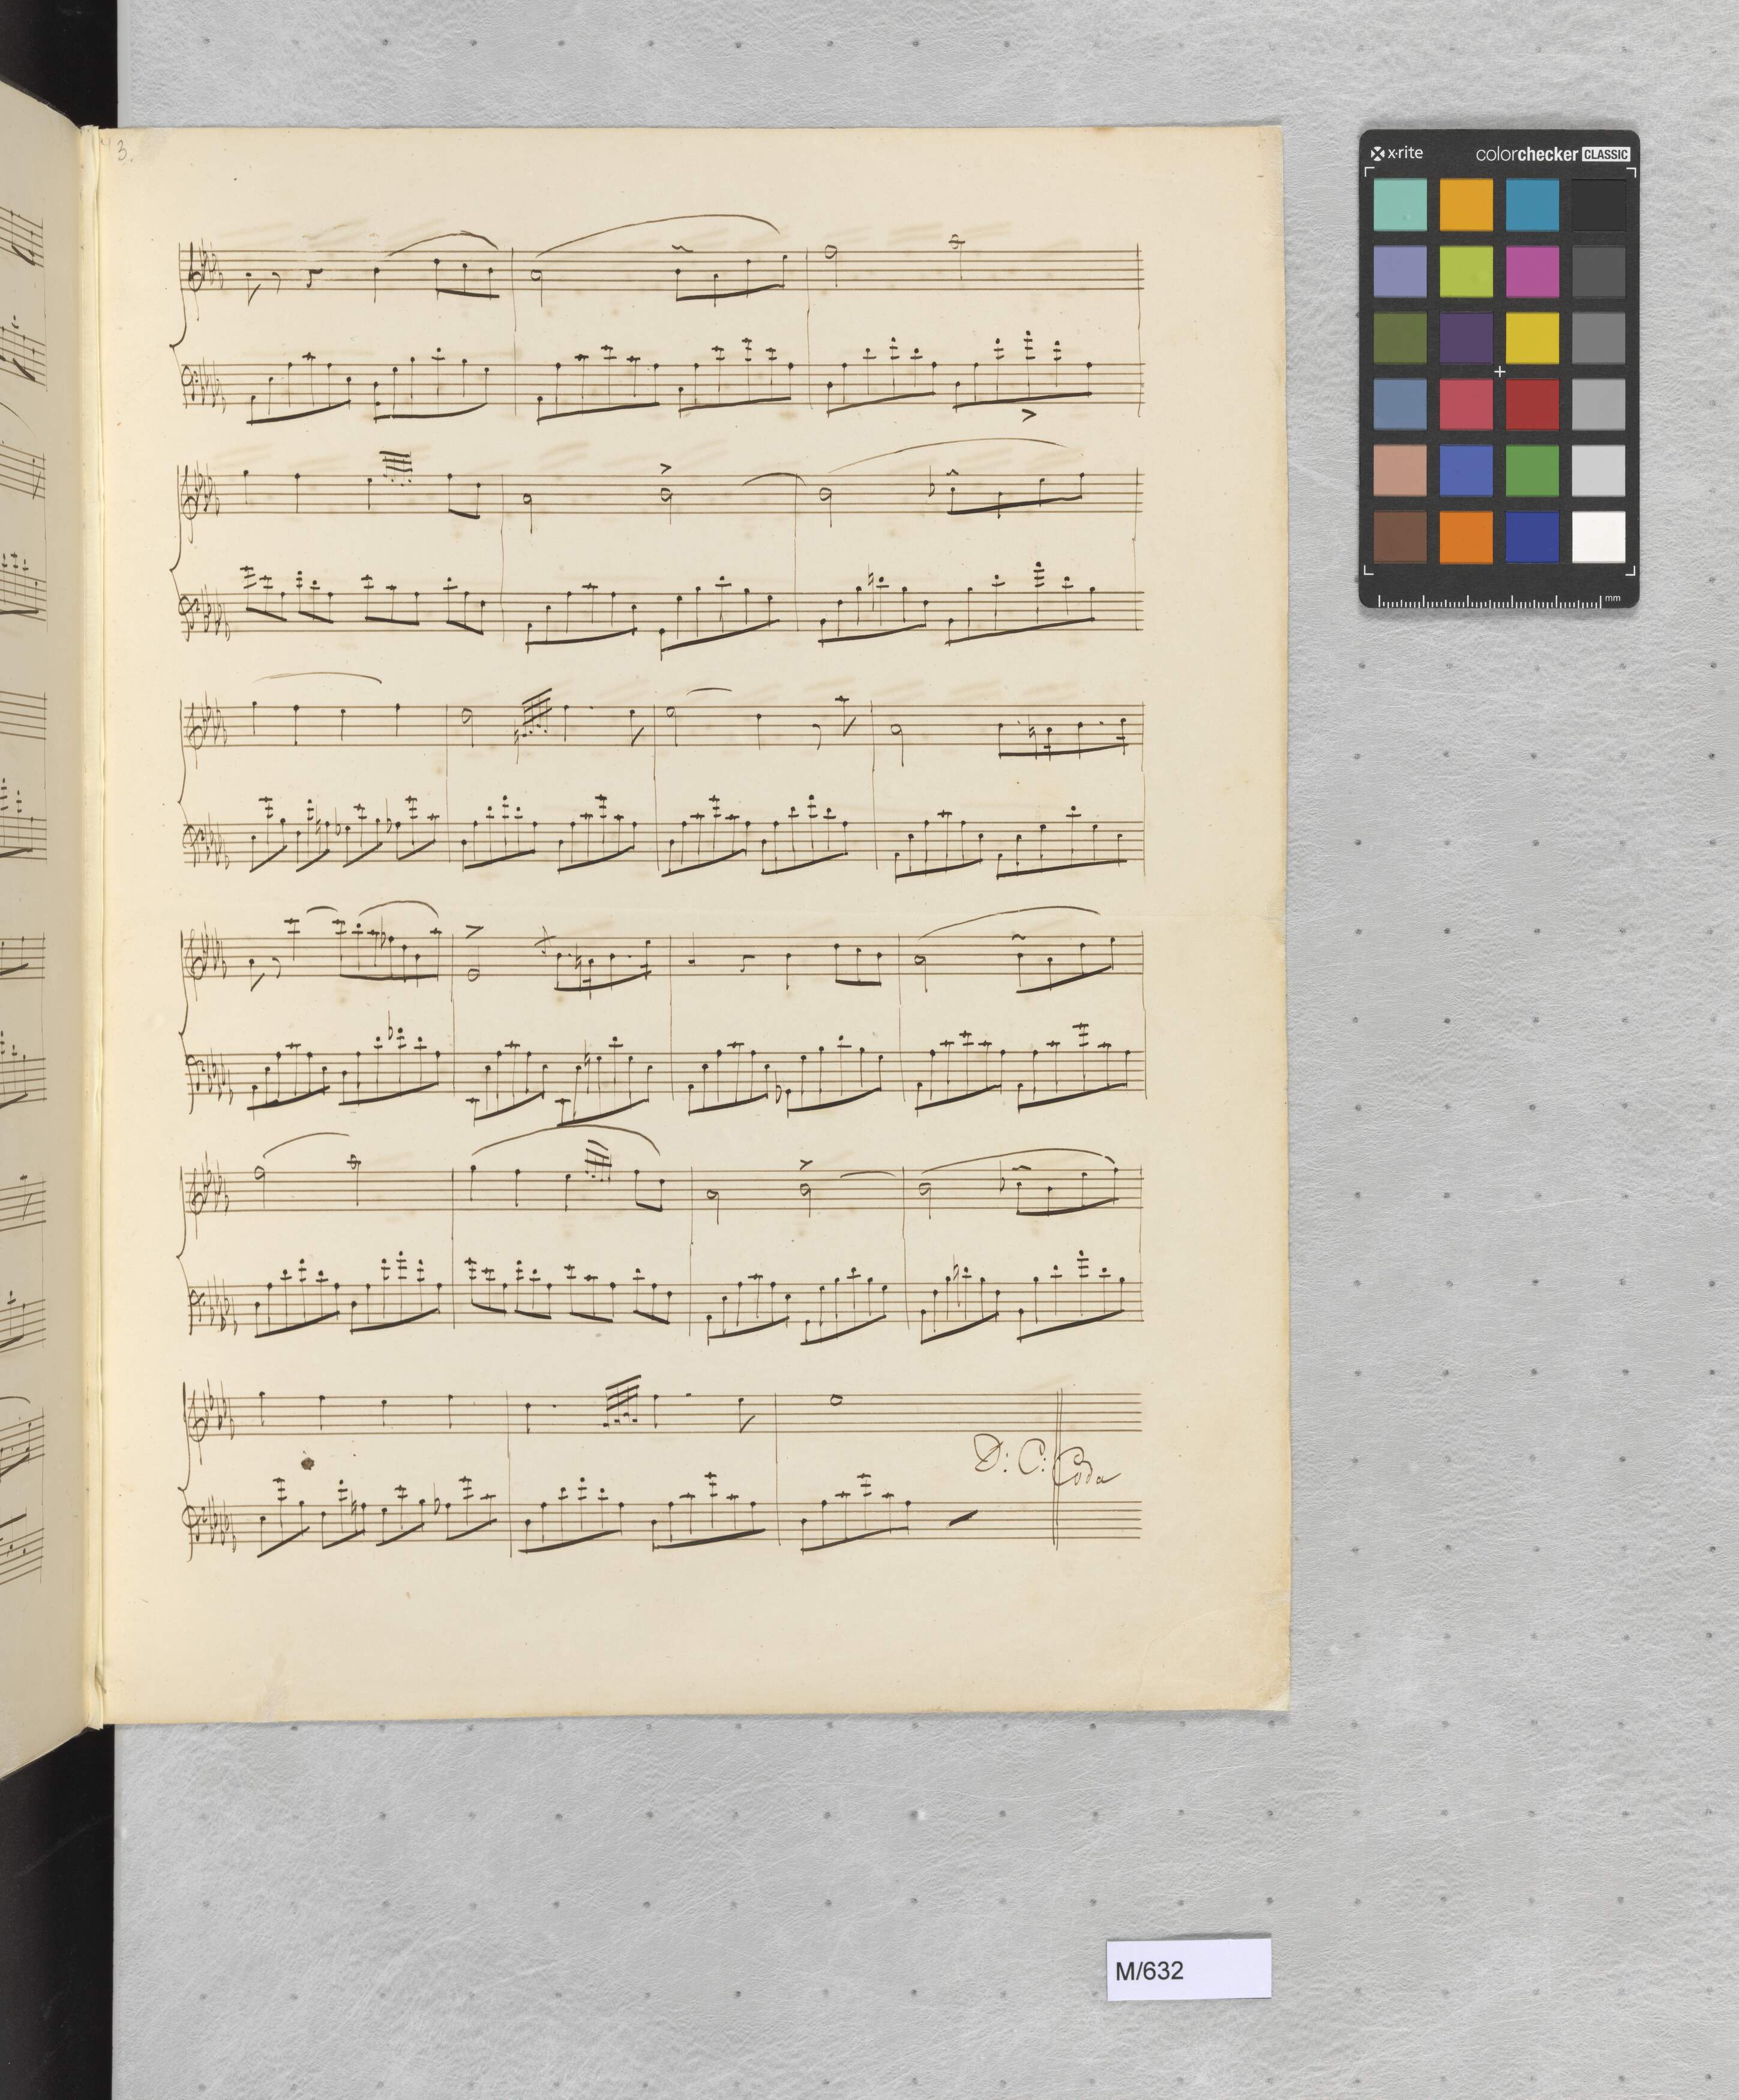 3.
x·rite colorchecker CLASSIC
mm
D: C: Coda
M/632